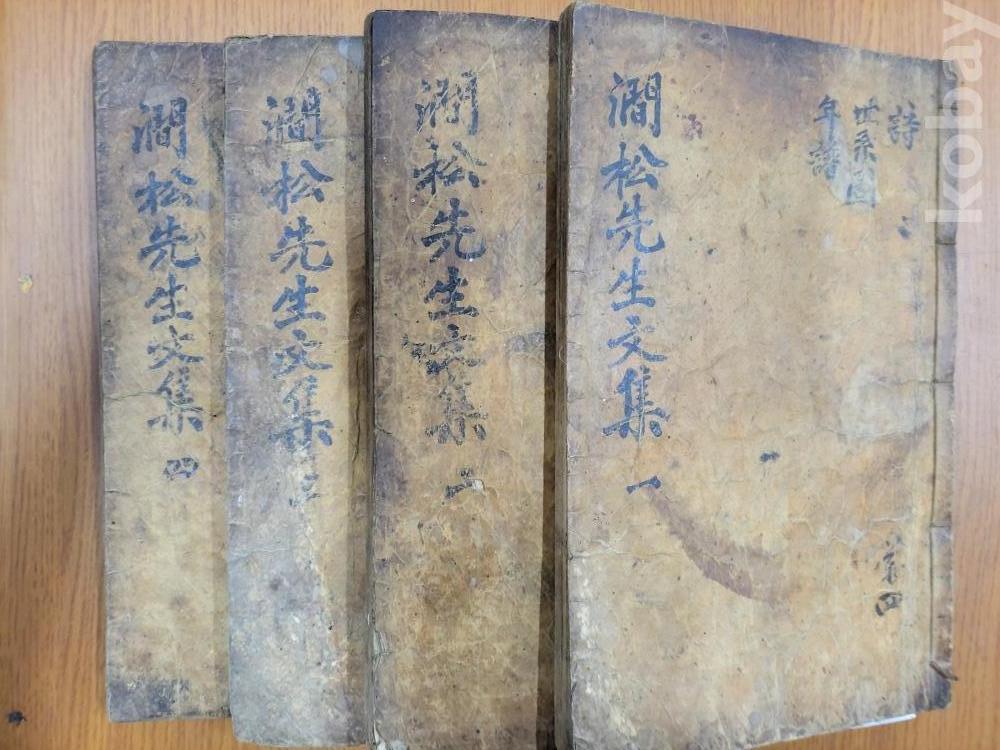 詩
世系圖
年譜
澗松先生文集 一
共四
澗松先生文集 二
澗松先生文集 三
澗松先生文集 四
kobay